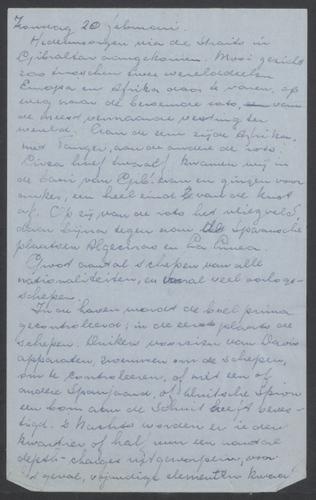 Zondag 20 februari.
Hedenmorgen via de Straits in
Gibraltar aangekomen. Mooi gezicht
zoo tusschen twee werelddeelen
Europa en Afrika door te varen, op
weg naar de beroemde rots, van
de meest vermaarde vesting ter
wereld. Aan de eene zijde Afrika,
met Tanger, aan de andere de rots.
Circa half twaalf kwamen wij in
de baai van Gibr. aan en gingen voor
anker, een heel eind van de kust
af. Op zij van de rots het vliegveld,
daar bijna tegen aan de Spaansche
plaatsen Algeciras en La Linea.
Groot aantal schepen van alle
nationaliteiten, en vooral veel oorlogs-
schepen.
In de haven wordt de boel prima
gecontroleerd; in de eerste plaats de
schepen. Duikers voorzien van Davis
apparaten, zwemmen om de schepen,
om te controleeren, of niet een of
andere Spanjaard, of Duitsche Spion
een bom aan de Schuit heeft beves-
tigd. 's Nachts worden er ieder
kwartier of half uur een aantal
depth-charges uitgeworpen, voor
't geval, vijandige elementen kwaad